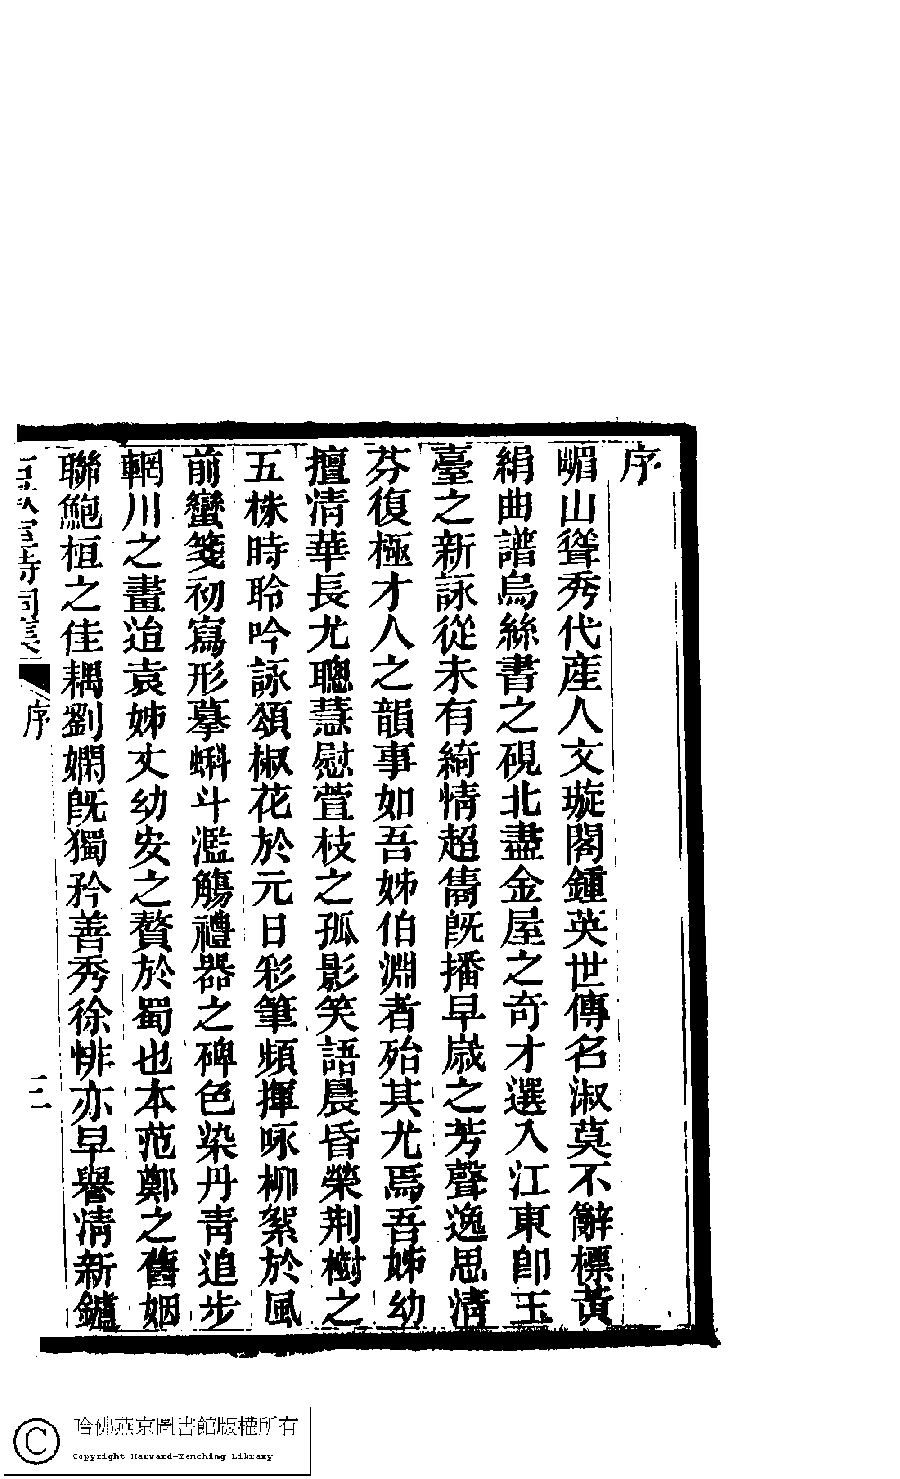 序
嵋山聳秀代產人文璇閣鍾英世傳名淑莫不辭標黃
絹曲譜烏絲書之硯北盡金屋之奇才選入江東卽玉
臺之新詠從未有綺情超雋旣播早歲之芳聲逸思清
芬復極才人之韻事如吾姊伯淵者殆其尤焉吾姊幼
擅清華長尤聰慧慰萱枝之孤影笑語晨昏榮荆樹之
五株時聆吟詠頌椒花於元日彩筆頻揮咏柳絮於風
前蠻箋初寫形摹蝌斗濫觴禮器之碑色染丹青追步
輞川之畫迨袁姊丈幼安之贅於蜀也本范鄭之舊姻
聯鮑桓之佳耦劉嫻旣獨矜善秀徐悱亦早譽清新鑪
序
三
哈佛燕京圖書館版權所有
Copyright Harvard-Yenching Library